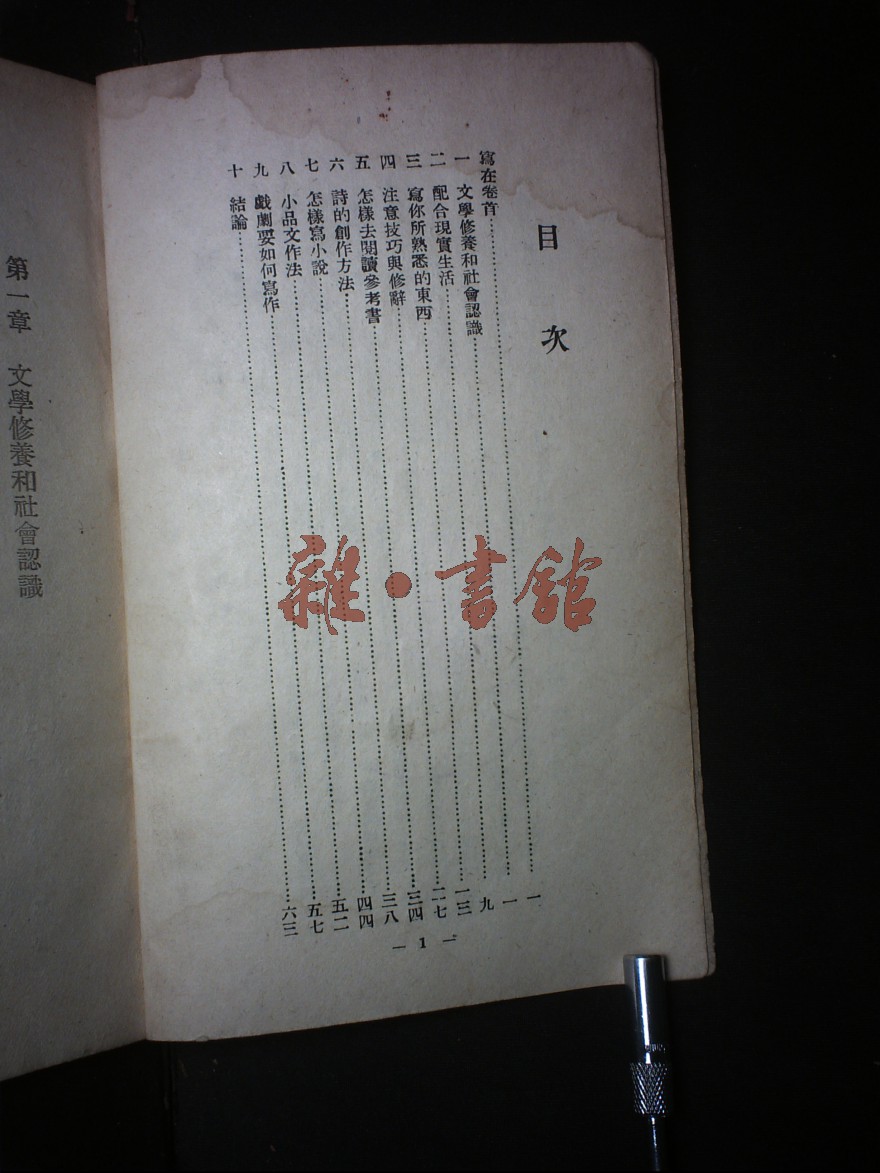 目次
寫在卷首……一
一 文學修養和社會認識……一
二 配合現實生活……九
三 寫你所熟悉的東西……一三
四 注意技巧與修辭……二七
五 怎樣去閱讀參考書……三四
六 詩的創作方法……三八
七 怎樣寫小說……四四
八 小品文作法……五二
九 戲劇要如何寫作……五七
十 結論……六三
— 1 —
第一章 文學修養和社會認識
雜·書館